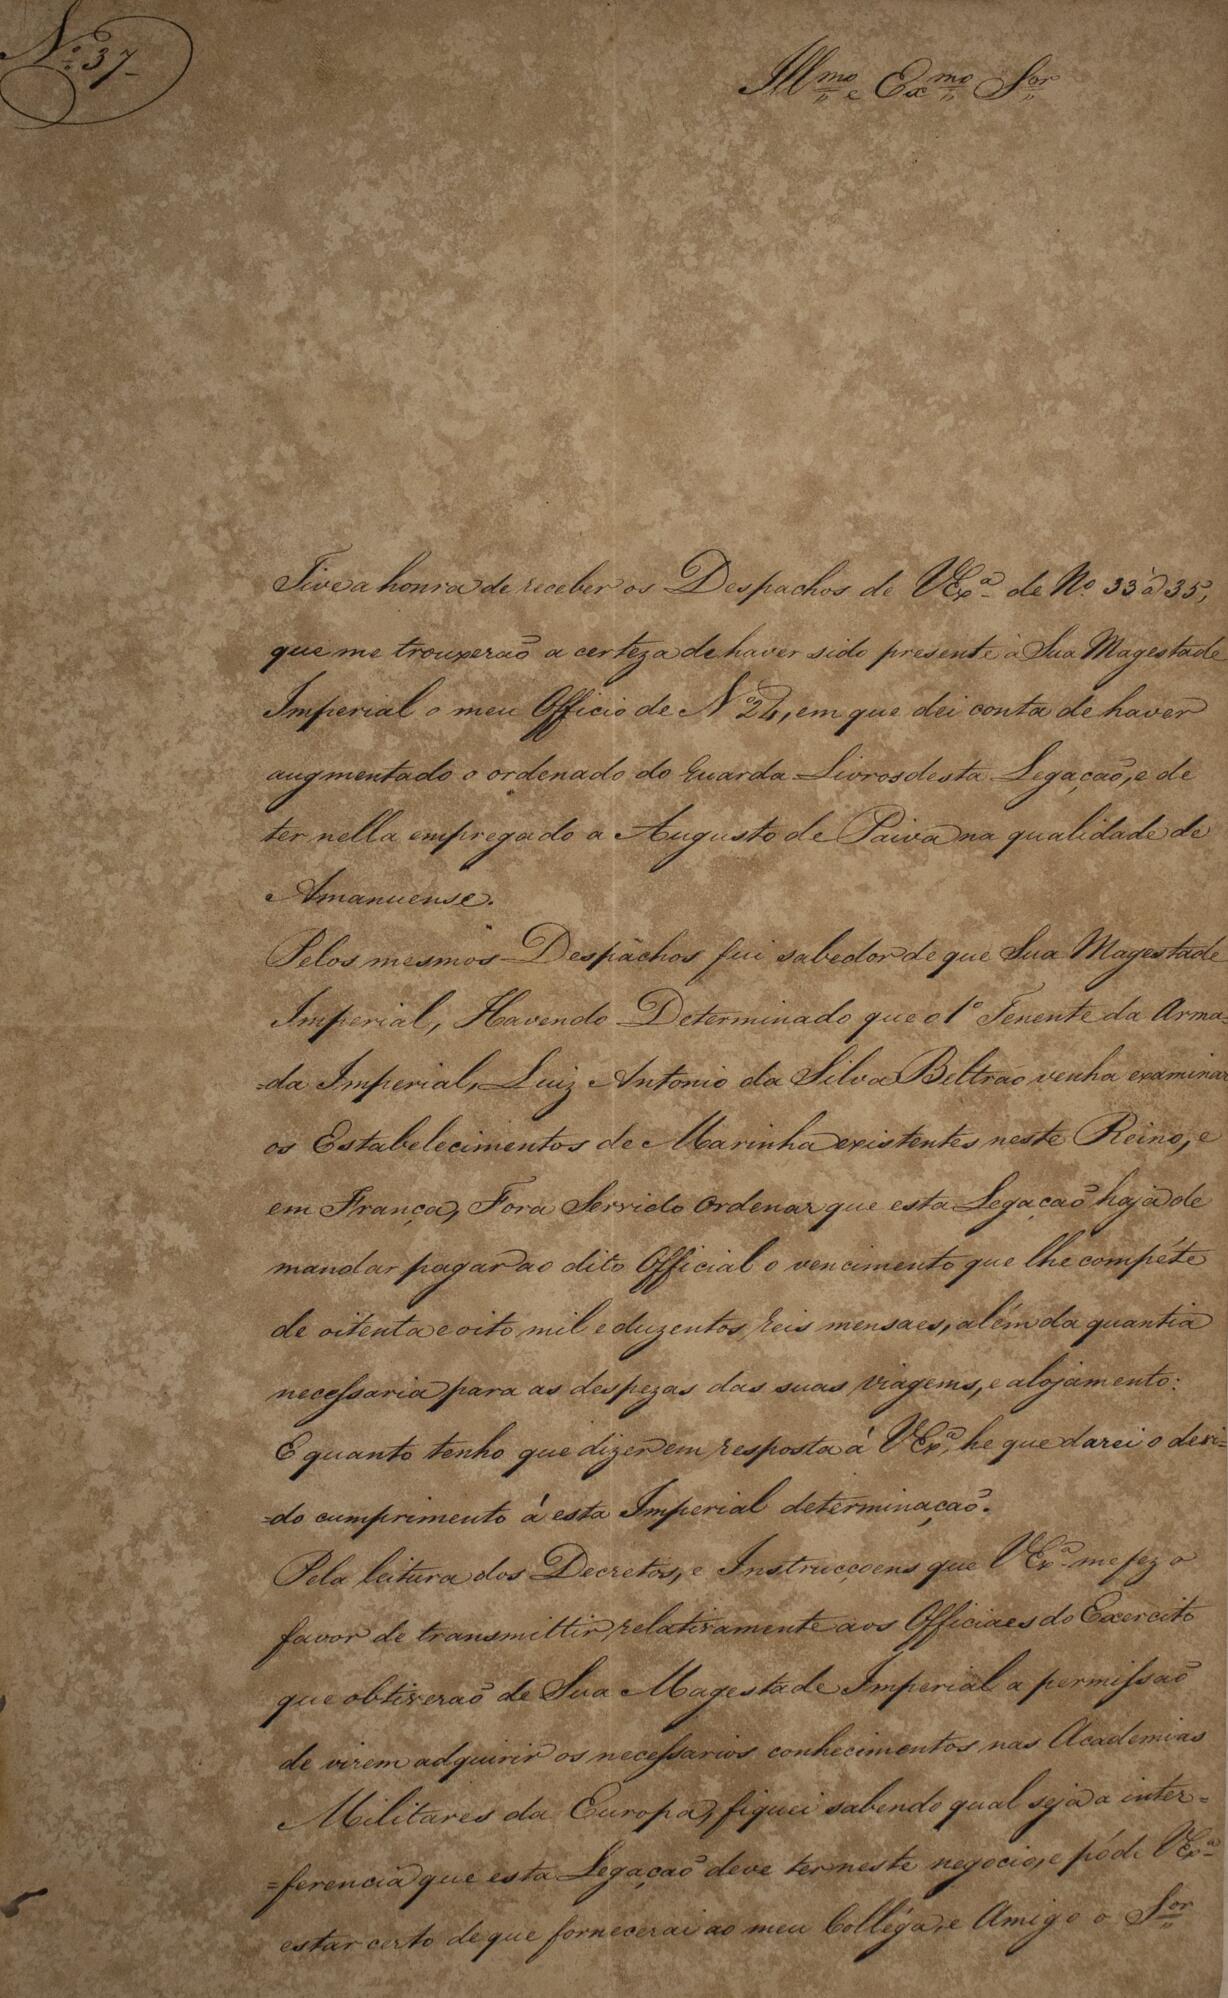 Nº 37
Illmo e Exmo Sor
Tive a honra de receber os Despachos de VExª de Nº 33 à 35,
que me trouxeraõ a certeza de haver sido presente à Sua Magestade
Imperial o meu Officio de Nº 24, em que dei conta de haver
augmentado o ordenado do Guarda Livros desta Legaçaõ, e de
ter nella empregado a Augusto de Paiva na qualidade de
Amanuense.
Pelos mesmos Despachos fui sabedor de que Sua Magestade
Imperial, Havendo Determinado que o 1º Tenente da Arma=
=da Imperial, Luiz Antonio da Silva Beltrao venha examinar
os Estabelecimentos de Marinha existentes neste Reino, e
em França, Fora Servido Ordenar que esta Legaçaõ haja de
mandar pagar ao dito Official o vencimento que lhe compéte
de oitenta e oito mil e duzentos reis mensaes, além da quantia
necessaria para as despezas das suas viagems, e alojamento:
E quanto tenho que dizer em resposta á VExª, he que darei o devi=
=do cumprimento á esta Imperial determinaçaõ.
Pela leitura dos Decretos, e Instrucçoens que VExª me fez o
favor de transmittir relativamente aos Officiaes do Exercito
que obtiveraõ de Sua Magestade Imperial a permissaõ
de virem adquirir os necessarios conhecimentos nas Academias
Militares da Europa, fiquei sabendo qual seja a inter=
=ferencia que esta Legaçaõ deve ter neste negocio, e póde VExª
estar certo de que fornecerai ao meu Colléga, e Amigo o Sor